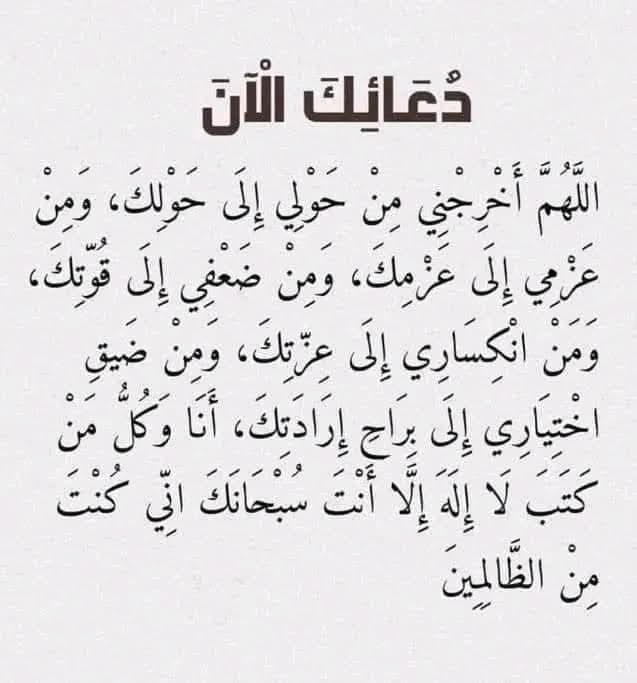 دُعَائِكَ الْآنَ
اللَّهُمَّ أَخْرِجْنِي مِنْ حَوْلِي إِلَى حَوْلِكَ، وَمِنْ
عَزْمِي إِلَى عَزْمِكَ، وَمِنْ ضَعْفِي إِلَى قُوَّتِكَ،
وَمَنْ انْكِسَارِي إِلَى عِزَّتِكَ، وَمِنْ ضَيقِ
اخْتِيَارِي إِلَى بِرَاحِ إِرَادَتِكَ، أَنَا وَكُلُّ مَنْ
كَتَبَ لَا إِلَهَ إِلَّا أَنْتَ سُبْحَانَكَ انِّي كُنْتَ
مِنْ الظَّالِمِينَ